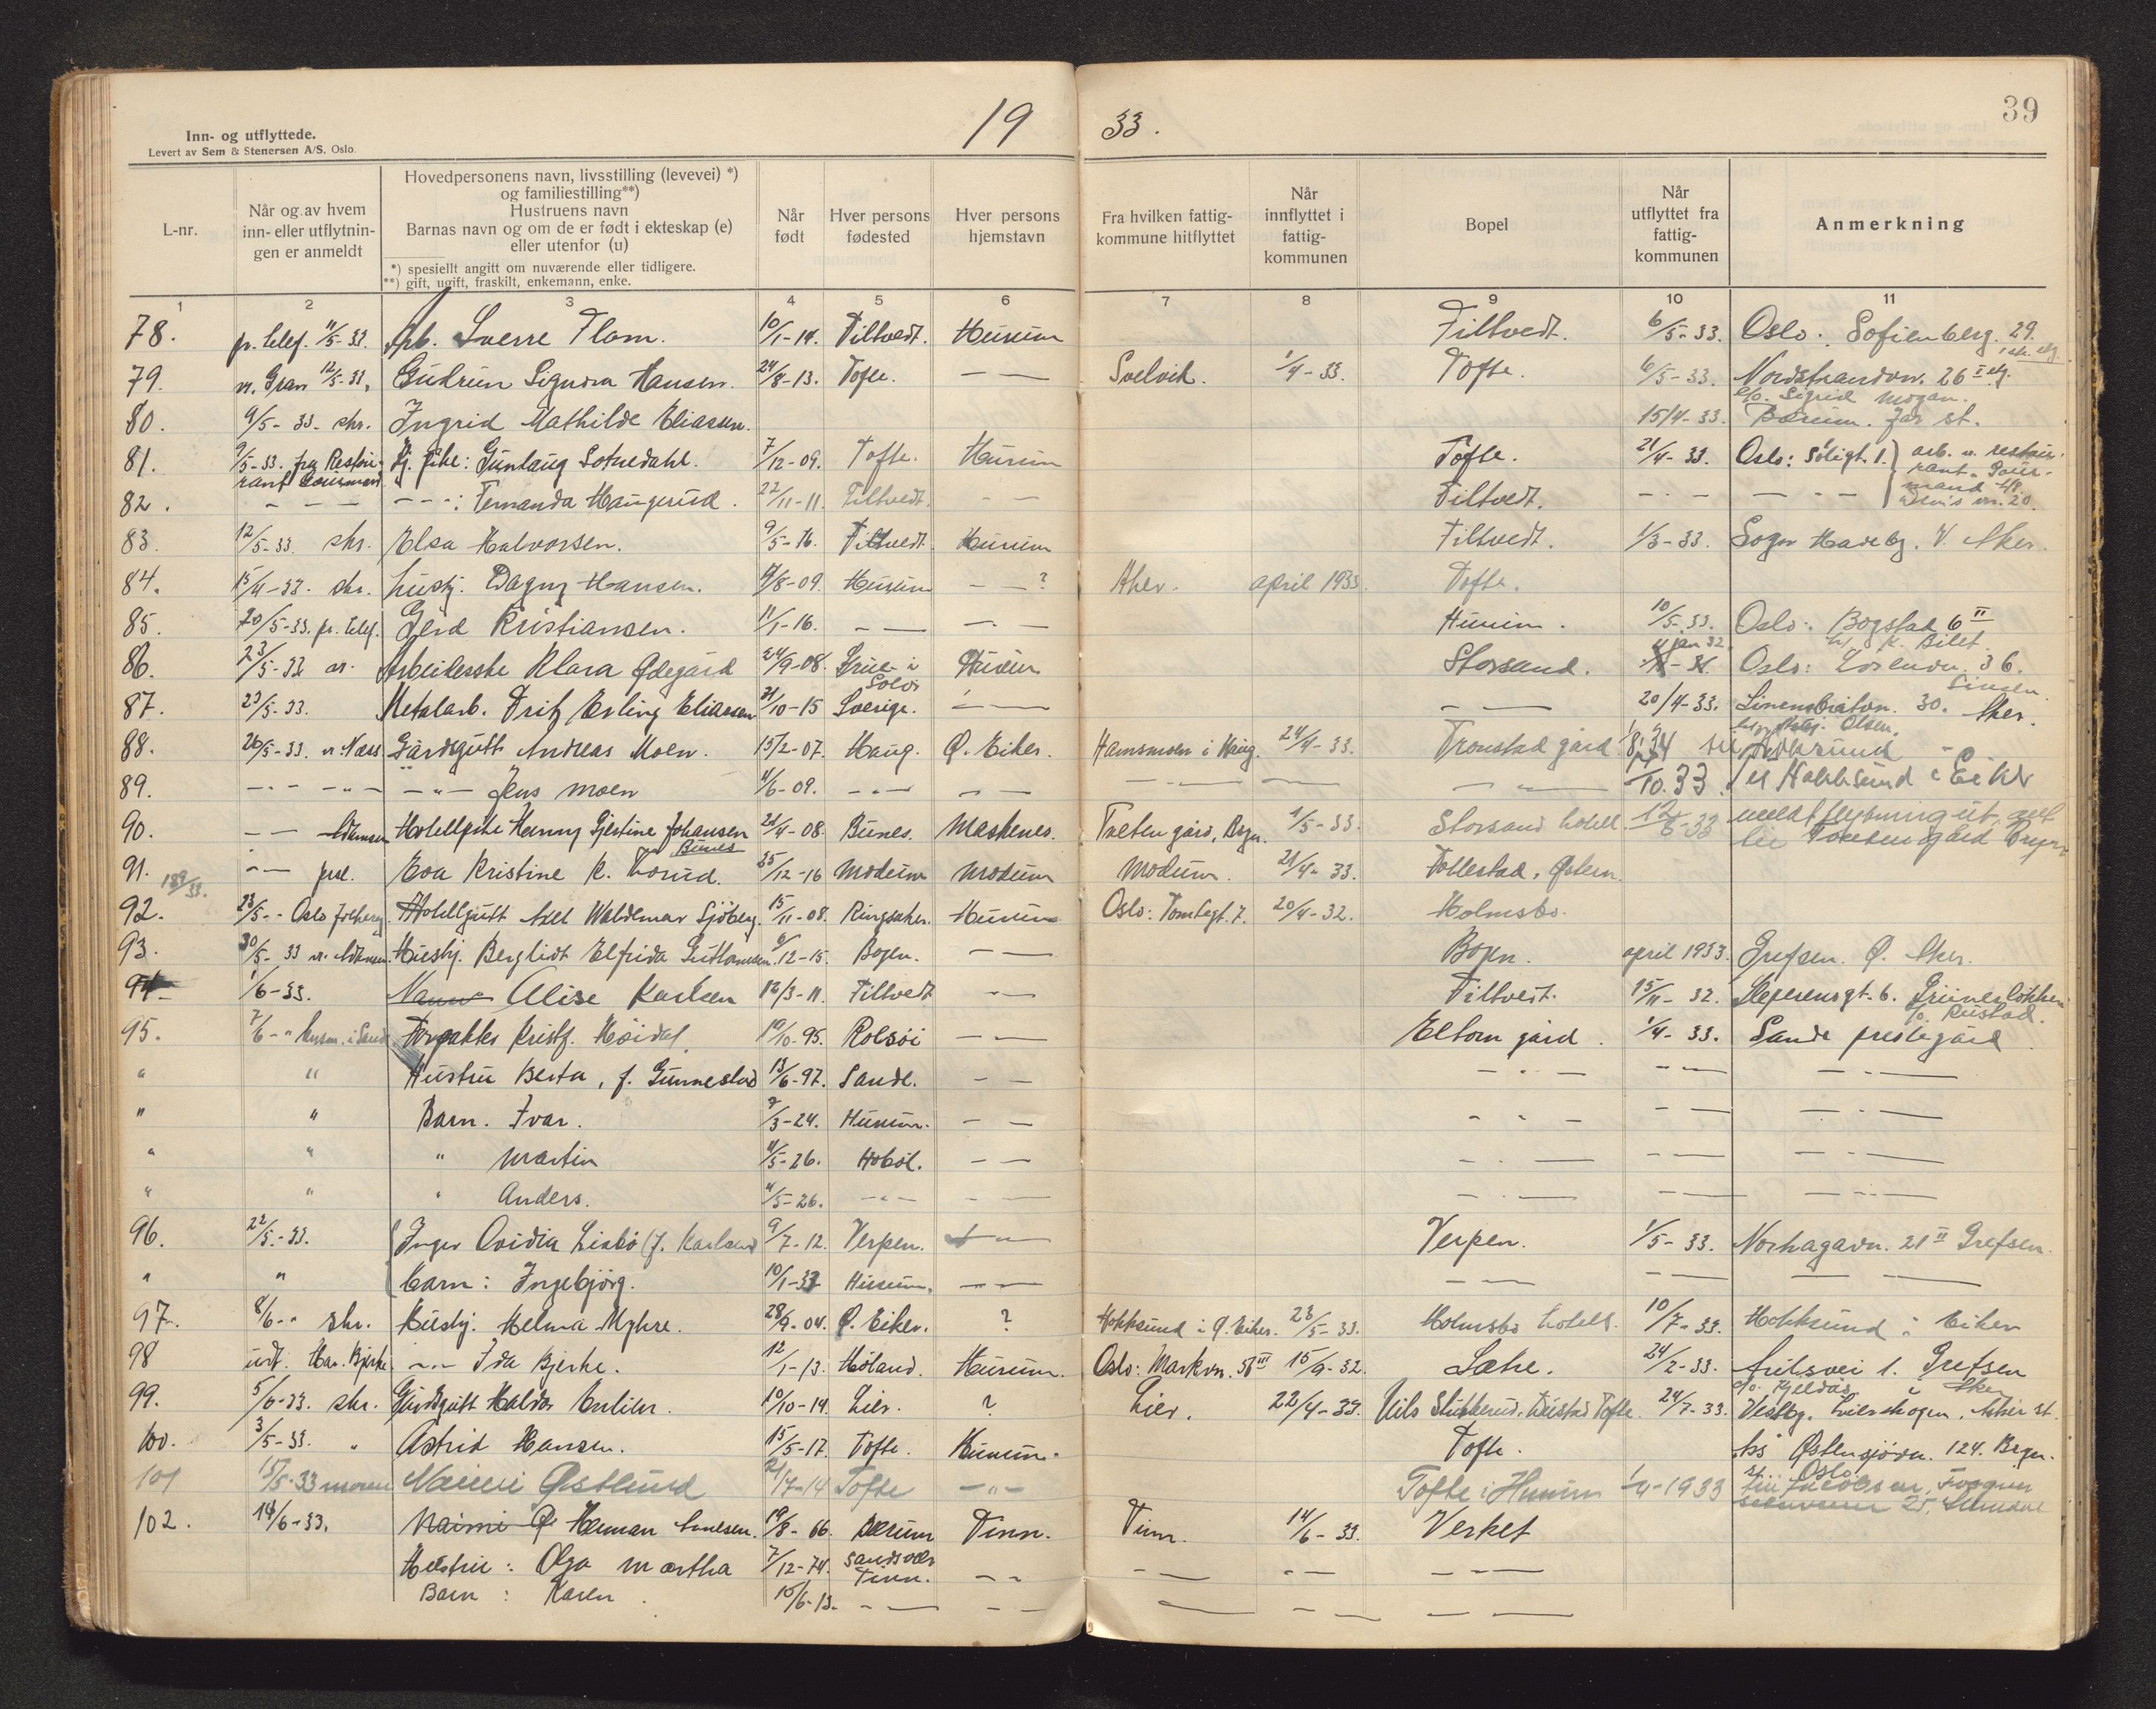 Inn- og utflyttede.
Levert av Sem & Stenersen A/S, Oslo.
19 33.
39
L-nr.
Når og av hvem inn- eller utflytningen er anmeldt
Hovedpersonens navn, livsstilling (levevei) *)
og familiestilling**)
Hustruens navn
Barnas navn og om de er født i ekteskap (e)
eller utenfor (u)
*) spesiellt angitt om nuværende eller tidligere.
**) gift, ugift, fraskilt, enkemann, enke.
Når født
Hver persons fødested
Hver persons hjemstavn
Fra hvilken fattigkommune hitflyttet
Når innflyttet i fattigkommunen
Bopel
Når utflyttet fra fattigkommunen
Anmerkning
1 2 3 4 5 6 7 8 9 10 11
78. pr. telef. 11/5-33. Arb. Sverre Flom. 10/1-14. Filtvedt. Hurum Filtvedt. 6/5-33. Oslo: Sofienberg. 29.
79. 12/5-33. Gudrun Signora Hansen. 24/8-13. Tofte. — — Svelvik. 1/4-33. Tofte. 6/5-33. Nordstrandvn. 26 I etg.
c/o. Sigrid Mogan.
80. 9/5-33. skr. Ingrid Mathilde Eliassen. 15/4-33. Bærum. Jar st.
81. 9/5-33. fra Restaurant Tj. pike: Gunlaug Sotnedahl. 7/12-09. Tofte. Hurum Tofte. 21/4-33. Oslo: Soligt. 1. arb. v. restaurant
82. — — — — - - : Fernanda Haugerud. 22/11-11. Filtvedt. — — Filtvedt. — - — — - —
83. 12/5-33. skr. Elsa Halvorsen. 9/5-16. Filtvedt. Hurum Filtvedt. 1/3-33. Sogn Haveby. V. Aker.
84. 15/4-33. skr. husbj. Dagny Hansen. /8-09. Hurum — — ? Aker. april 1933. Tofte.
85. 20/5-33. pr. telef. Gerd Kristiansen. 11/1-16. — — — — Hurum. 10/5-33. Oslo: Bogstad 6 II
86. 23/5-33 Arbeiderske Klara Ødegård 24/9-08. Grue i Solør Hurum Storsand. jan 32 Oslo: 36.
Sinsen.
87. 23/5-33. Metalarb. Fritz Erling Eliassen 31/10-15 Sverige. — — — — 20/4-33. 30. Aker.
88. 26/5-33. v. Næss Gårdsgutt Andreas Moen. 15/2-07. Haug. Ø. Eiker. Hamsmoen i Haug. 24/4-33. Tronstad gård til Hokksund
89. — - - — " — — " — Jens Moen 11/6-09. — - — — — — — — — — /10.33. til Hokksund i Eiker
90. — — Adamsen Hotellpike Hanny Gjestine Johansen 21/4-08. Bunes. Maskenes. Tveten gård, Brgn. 1/5-33. Storsand hotell 12/6-33 meldt flytning ut, gul
Bunes
91. — — prsl. Eva Kristine K. Torud. 25/12-16 Modum Modum Modum. 21/4-33. Tollestad, Østern.
92. 23/5- - Oslo folkereg. Hotellgutt Axel Waldemar Sjöberg. 15/11-08. Ringsaker. Hurum Oslo: Tomtegt. 7. 20/4-32. Holmsbo.
93. 30/5-33 v. Adamsen. Husbj. Berglidt Elfrida Guttormsen. /12-15. Bogen. — — Bogen. april 1933. Grefsen. Ø. Aker.
94. 1/6-33. Alise Karlsen 12/3-11. Filtvedt — — Filtvedt. 15/11-32. 6. Grünerløkken
c/o. Rustad.
95. 7/6- " i Sande Forpakter Kristf. Høidal. 10/10-95. Rolsøi — — Eltorn gård. 1/4-33. Sande prestegård
" " Hustru Berta, f. Gunnestad 13/6-97. Sande. — — — - — — — — - —
" " Barn. Ivar. /3-24. Hurum. — — — - — — — — - —
" " " Martin 4/5-26. Hobøl. — — — - — — — — - —
" " " Anders. 4/5-26. — - — — — — - — — — — - —
96. 22/5-33. Inger Ovidia Lisbö (f. Karlsen) 9/7-12. Verpen. — — Verpen. 1/5-33. Norhagavn. 21 II Grefsen.
" " Barn: Ingebjörg. 10/1-33 Hurum. — — — — — — — —
97. 8/6- " skr. Husbj. Helma Myhre. 28/9-04. Ø. Eiker. ? Hokksund i Ø. Eiker. 23/5-33. Holmsbo hotell. 10/7-33. Hokksund i Eiker
98 Har. Bjerke — " — Ida Bjerke. 12/1-13. Høland. Hurum. Oslo: Markvn. 58 III 15/9-32. Sætre. 24/2-33. 1. Grefsen
c/o. Aker
99. 5/6-33. skr. Gårdsgutt Haldor Enlien. 10/10-14. Lier. ? Lier. 22/4-33. Nils Stikkerud, Tofte. 24/7-33. Vestby. Lierskogen, Asker st.
100. 3/5-33. " Astrid Hansen. 15/5-17. Tofte. Hurum. Tofte. hs Østensjøvn. 124. Brgn.
st. Oslo.
101 15/5-33 moren Naimi Østlund 21/7-14 Tofte — " — Tofte i Hurum 1/4-1933 til Jacobsen, Frogner
102. 14/6-33. Naimi Ø Herman 19/8-66. Bærum Tinn. Tinn. 14/6-33. Verket
Hustru: Olga Martha 7/12-74. Sandsvær — - — — — — — - —
Barn: Karen. 15/6-13. Tinn. — — — — — — — — —